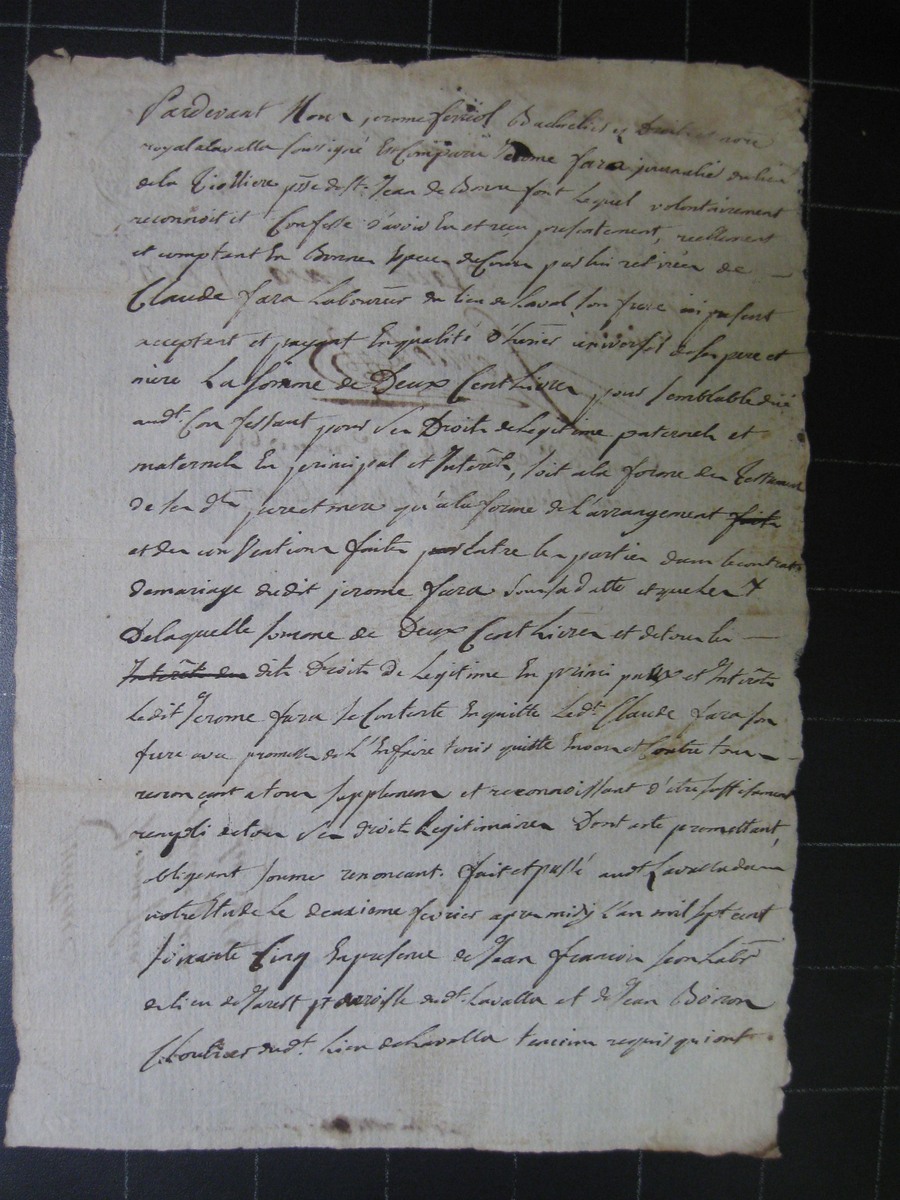 Pardevant Nous jerome feriol Bachelier es Droit et notre
royal a lavalla soussigné En Comparu Jerome fara journalié du lieu
de la psse de St. Jean de Bonne font Lequel volontairement
reconnoit et Confesse d'avoir Eu et recu presentement, reellement
et comptant En Bonnes Especes de Cours par lui retirées de
Claude fara Laboureur du lieu de Laval son frere ici present
acceptant et payant En qualité d'heritier universel de ses pere et
mere La somme de Deux Cent Livres pour semblable düe
audt Confessant pour ses Droits de Legitime paternels et
maternels En principal et Interets, soit a la forme des Testament
de ses dts pere et mere qu'a la forme de l'arrangement faits
et des faites par Entre les parties dans le contrat
de mariage dudit jerome fara sous sa datte
De laquelle somme de Deux Cent Livres et de tous les
Interêt des dits Droits De Legitime En principaux et Interêts
Ledit Jerome fara se Contente En quitte Ledt. Claude fara son
frere avec promesse de L'En faire tenir quitte Envers et Contre tous
renoncant a tous supplement et reconnoissant d'être suffisament
rempli de tous ses droits Legitimaires Dont acte promettant
obligeant soumes renoncant. fait et passé audt Lavalla dans
notre Etude Le deuxieme fevrier apres midy L'an mil sept cent
soixante Cinq En presence de Jean francois Labr
du lieu de paroisse dudt. Lavalla et de Jean Boiron
Cloutier dudt. Lieu de Lavalla temoins requis qui ont